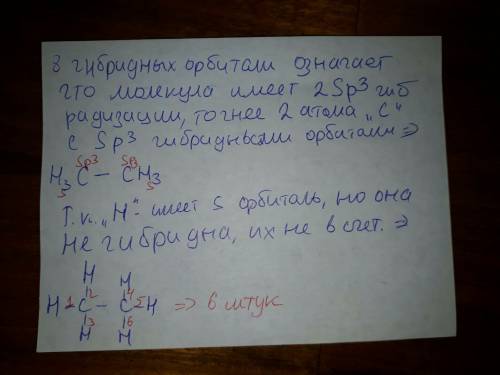 8 гибридных орбитали означает
что молекула имеет 2 Sp3 гиб
радизации, точнее 2 атома „С"
с Sp3 гибридными орбитали =>
Sp3 Sp3
H3C - CH3
S S
Т.к. „Н" - имеет S орбиталь, но она
не гибридна, их не в счет. =>
H H
H 1 C 2 - C 4 5 H => 6 штук
3 6
H H